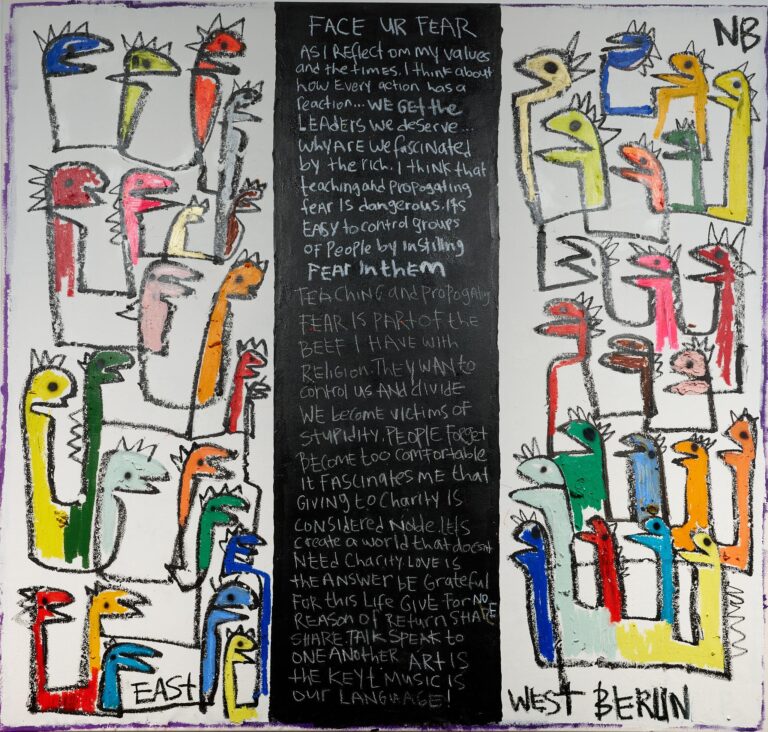 FACE UR FEAR
AS I REFLECT ON MY VALUES
and the times. I think about
how EVERY action has a
REACTION... WE GET the
LEADERS WE deserve...
Why ARE WE fascinated
by the rich. I think that
teaching and Propogating
fEAR IS dangerous. Its
EASY to control groups
OF PEOPLE by instilling
FEAR in thEM
TEACHING and PROPOGATING
FEAR IS PART OF the
BEEF I HAVE WITH
RELIGION. THEY WANT to
control us AND divide
WE become victims OF
STUPIDITY. PEOPLE FORGET
BECOME too COMFORTABLE
it FASCINATES ME that
GIVING to CHARITY IS
CONSIDERED NOBLE. ItIS
create a WORLD that doesnt
NEED CHARITY. LOVE IS
the ANSWER BE Grateful
FOR this LIFE GIVE FOR NO
REASON OF RETURN SHARE
SHARE TALK SPEAK to
ONE ANOTHER. ART IS
the KEY! MUSIC IS
OUR LANGUAGE!
NB
EAST
WEST BERLIN